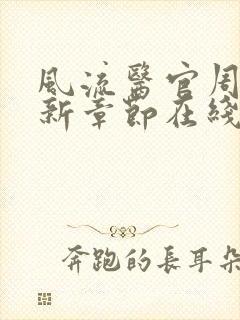 風流醫官周
新章節在綫
奔跑的長耳朵